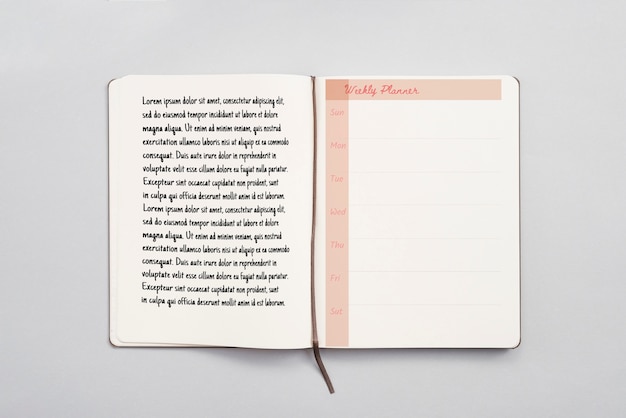 Lorem ipsum dolor sit amet, consectetur adipiscing elit,
sed do eiusmod tempor incididunt ut labore et dolore
magna aliqua. Ut enim ad minim veniam, quis nostrud
exercitation ullamco laboris nisi ut aliquip ex ea commodo
consequat. Duis aute irure dolor in reprehenderit in
voluptate velit esse cillum dolore eu fugiat nulla pariatur.
Excepteur sint occaecat cupidatat non proident, sunt
in culpa qui officia deserunt mollit anim id est laborum
Lorem ipsum dolor sit amet, consectetur adipiscing elit,
sed do eiusmod tempor incididunt ut labore et dolore
magna aliqua. Ut enim ad minim veniam, quis nostrud
exercitation ullamco laboris nisi ut aliquip ex ea commodo
consequat. Duis aute irure dolor in reprehenderit in
voluptate velit esse cillum dolore eu fugiat nulla pariatur.
Excepteur sint occaecat cupidatat non proident, sunt
in culpa qui officia deserunt mollit anim id est laborum
Weekly Planner
Sun
Mon
Tue
Wed
Thu
Fri
Sat